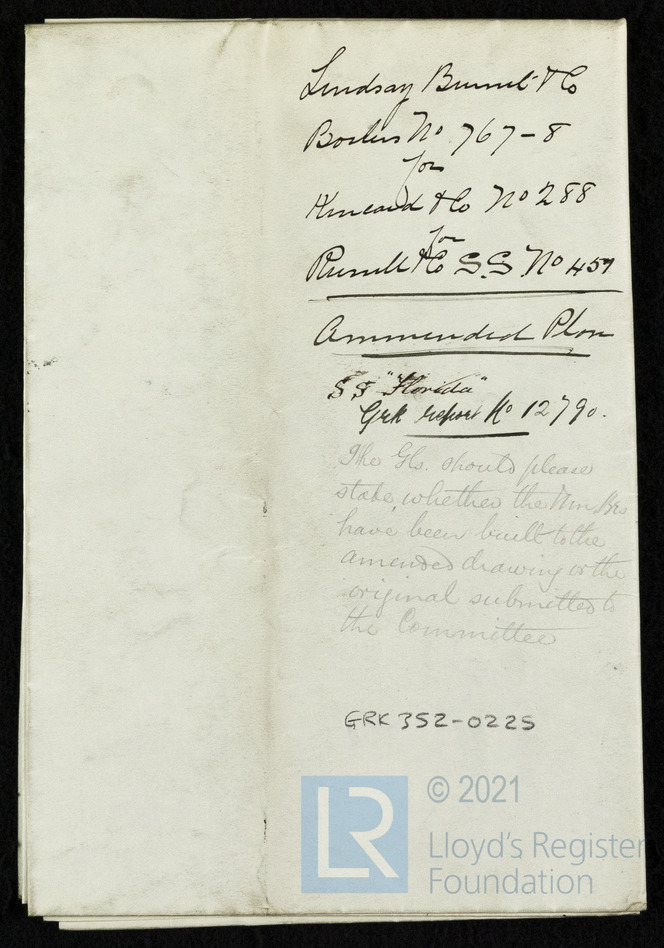 Lindsay Burnet & Co
Boilers No 767-8
for
Kincaid & Co No 288
for
Russell & Co S.S No 459
Ammended Plan
SS "Florida"
Grk report No 12790.
The Gls. should please
state, whether the Mn Brs
have been built to the
amended drawing or the
original submitted to
the Committee
GRK 352-0225
LR
© 2021
Lloyd's Register
Foundation